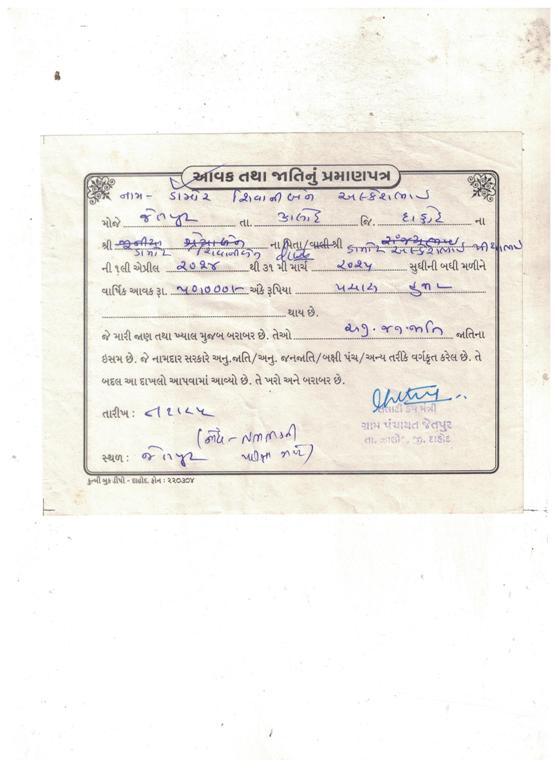 આવક તથા જાતિનું પ્રમાણપત્ર
નામ- ડામોર શિવાનીબેન
મોજે જેતપુર તા. ઝાલોદ જિ. દાહોદ ના
શ્રી ના પિતા/વાલી શ્રી
ડામોર શિવાનીબેન ડામોર
ની ૧લી એપ્રીલ ૨૦૨૪ થી ૩૧ મી માર્ચ ૨૦૨૫ સુધીની બધી મળીને
વાર્ષિક આવક રૂા. ૫૦,૦૦૦/- અંકે રૂપિયા પચાસ હજાર
થાય છે.
જે મારી જાણ તથા ખ્યાલ મુજબ બરાબર છે. તેઓ અનુ. જન જાતિ જાતિના
ઇસમ છે. જે નામદાર સરકારે અનુ.જાતિ/અનુ. જનજાતિ/બક્ષી પંચ/અન્ય તરીકે વર્ગકૃત કરેલ છે. તે
બદલ આ દાખલો આપવામાં આવ્યો છે. તે ખરો અને બરાબર છે.
તલાટી કમ મંત્રી
તારીખ :
ગ્રામ પંચાયત જેતપુર
તા. ઝાલોદ, જી. દાહોદ
સ્થળ : જેતપુર
કુત્બી બુક ડીપો - દાહોદ. ફોન : ૨૨૦૩૦૪